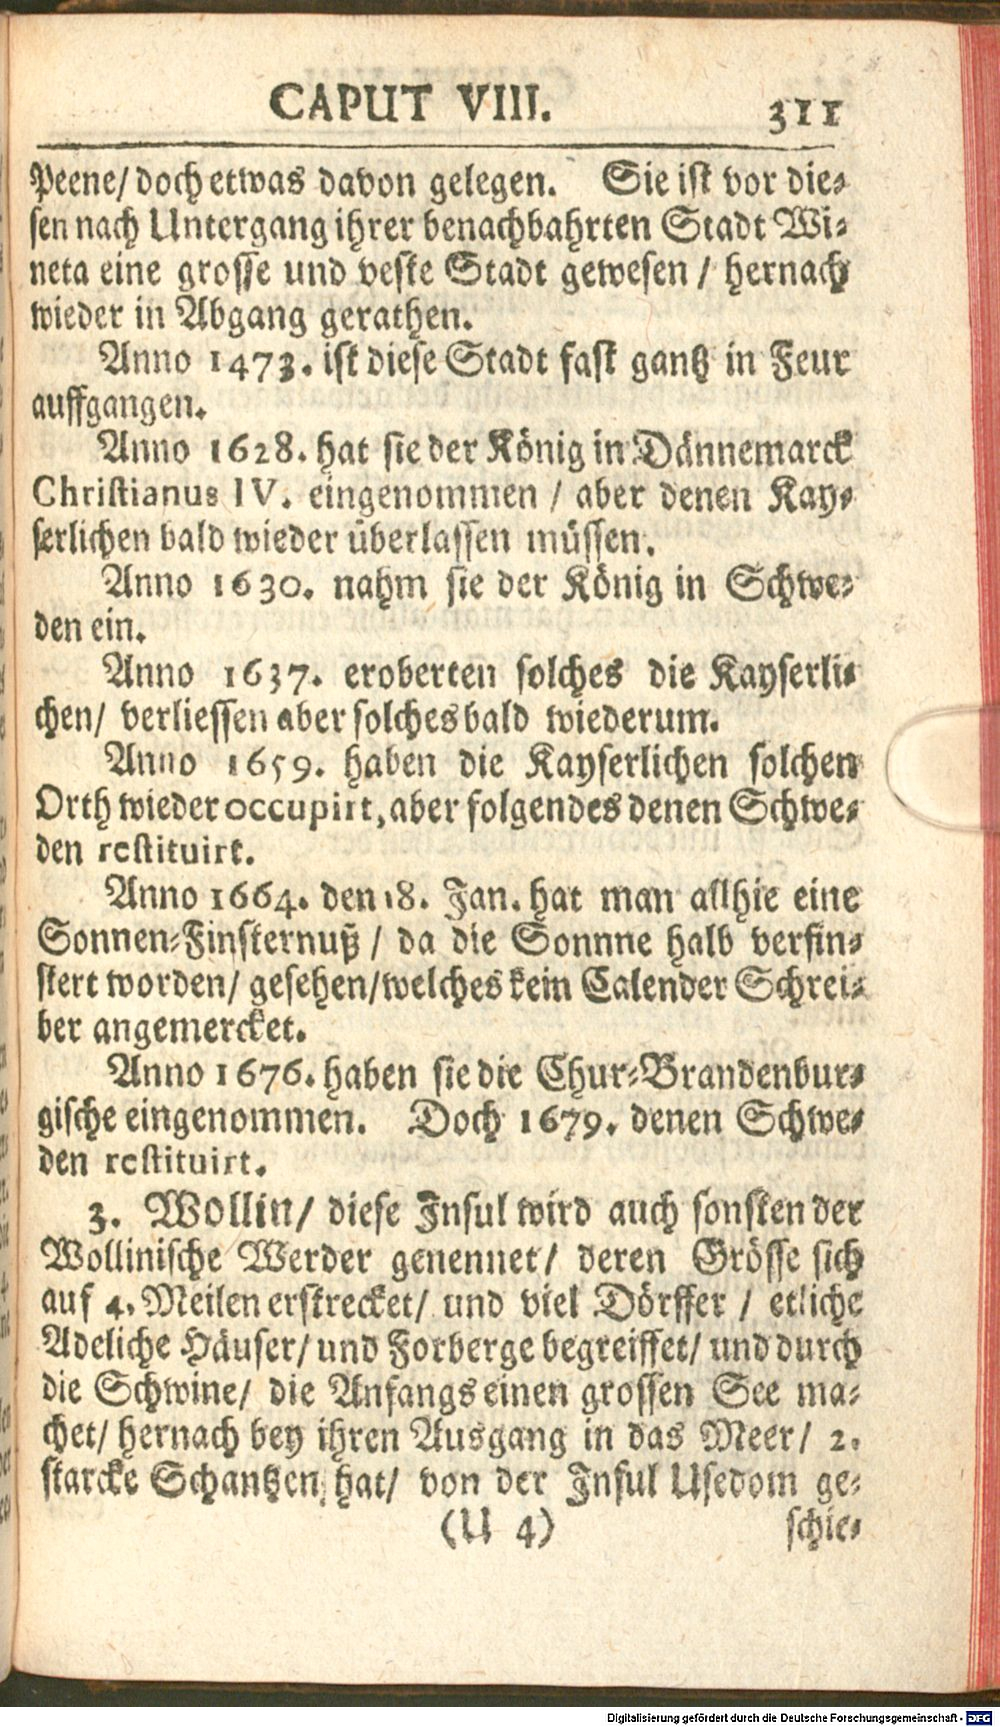 CAPUT VIII. 311
Peene/ doch etwas davon gelegen. Sie ist vor die-
sen nach Untergang ihrer benachbahrten Stadt Wi-
neta eine grosse und veste Stadt gewesen / hernach
wieder in Abgang gerathen.
Anno 1473. ist diese Stadt fast gantz in Feur
auffgangen.
Anno 1628. hat sie der König in Dännemarck
Christianus IV. eingenommen / aber denen Kay-
serlichen bald wieder überlassen müssen.
Anno 1630. nahm sie der König in Schwe-
den ein.
Anno 1637. eroberten solches die Kayserli-
chen/ verliessen aber solches bald wiederum.
Anno 1659. haben die Kayserlichen solchen
Orth wieder occupirt, aber folgendes denen Schwe-
den restituirt.
Anno 1664. den 18. Jan. hat man allhie eine
Sonnen-Finsternuß / da die Sonnne halb verfin-
stert worden/ gesehen/welches kein Calender Schrei-
ber angemercket.
Anno 1676. haben sie die Chur-Brandenbur-
gische eingenommen. Doch 1679. denen Schwe-
den restituirt.
3. Wollin/ diese Insul wird auch sonsten der
Wollinische Werder genennet/ deren Grösse sich
auf 4. Meilen erstrecket/ und viel Dörffer / etliche
Adeliche Häuser/ und Forberge begreiffet/ und durch
die Schwine/ die Anfangs einen grossen See ma-
chet/ hernach bey ihren Ausgang in das Meer/ 2.
starcke Schantzen hat/ von der Insul Usedom ge-
(U 4) schie-
Digitalisierung gefördert durch die Deutsche Forschungsgemeinschaft - DFG